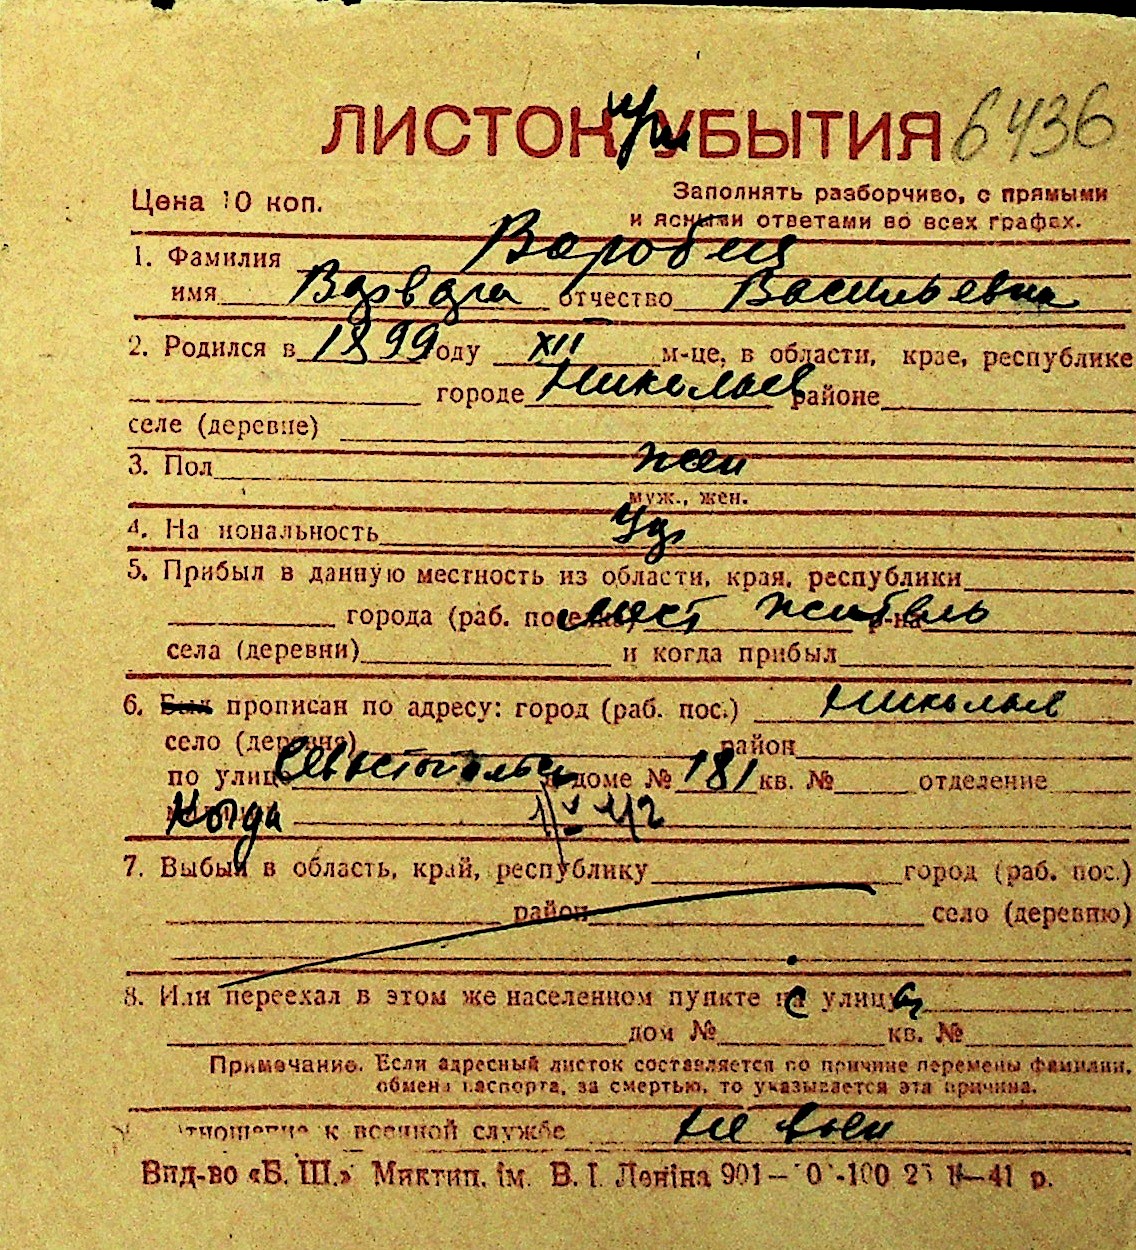 ЛИСТОК при УБЫТИЯ 6436
Цена 10 коп.
Заполнять разборчиво, с прямыми
и ясными ответами во всех графах.
1. Фамилия Воробец
имя Варвара отчество Васильевна
2. Родился в 1899 году XII м-це, в области, крае, республике
городе Николаев районе
селе (деревне)
3. Пол жен
муж., жен.
4. На иональность
5. Прибыл в данную местность из области, края, республики
города (раб. поселка) мест житель р-на
села (деревни) и когда прибыл
6. Был прописан по адресу: город (раб. пос.) Николаев
село (деревня) район
по улице доме № 181 кв. № отделение
Когда
7. Выбыл в область, край, республику город (раб. пос.)
район село (деревню)
8. Или переехал в этом же населенном пункте с улицы
дом № кв. №
Примечание. Если адресный листок составляется по причине перемены фамилии,
обмена паспорта, за смертью, то указывается эта причина.
тношение к военной службе не воен
Вид-во «Б. Ш.» Миктип. ім. В. І. Леніна 901—